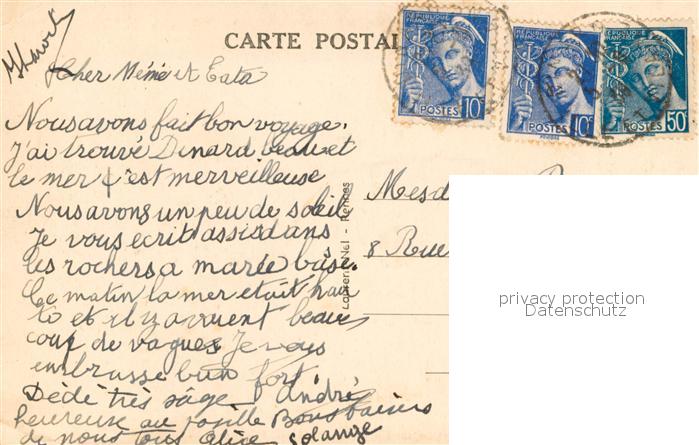 CARTE POSTAL
RÉPUBLIQUE FRANÇAISE
POSTES 10c
RÉPUBLIQUE FRANÇAISE
POSTES 10c
RÉPUBLIQUE FRANÇAISE
POSTES 50c
Cher Mémé et Tata
Nous avons fait bon voyage.
J'ai trouvé Dinard beau et
le mer c'est merveilleuse
Nous avons un peu de soleil
Je vous ecrit assis dans
les rochers a marée base.
Ce matin la mer etait hau
te et il y avaient beau
coup de vagues Je vous
embrasse bien fort.
Dédé très sage André
heureuse au Bons baisers
de nous tous Alice Solange
Laurent-Nel - Rennes
Mesd
8 Rue
privacy protection
Datenschutz